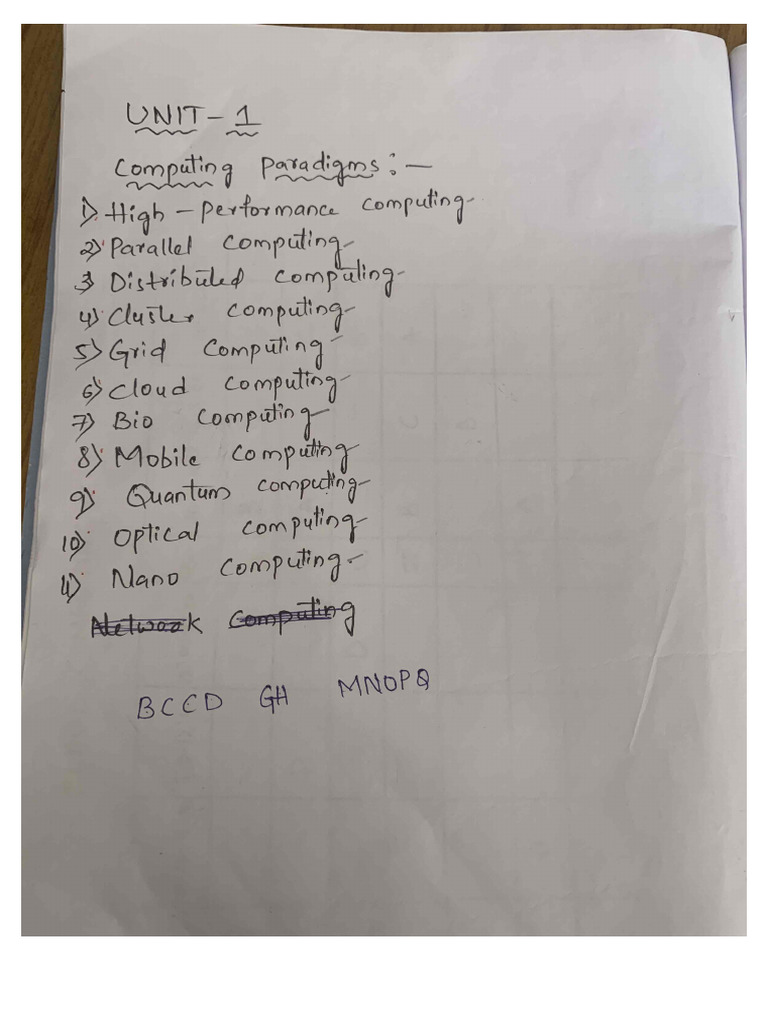 UNIT - 1
Computing Paradigms : -
1) High - Performance computing
2) Parallel computing
3 Distributed computing
4) Cluster computing
5) Grid computing
6) Cloud computing
7) Bio computing
8) Mobile computing
9) Quantum computing
10) Optical computing
11) Nano computing
Network Computing
BCCD GH MNOPQ